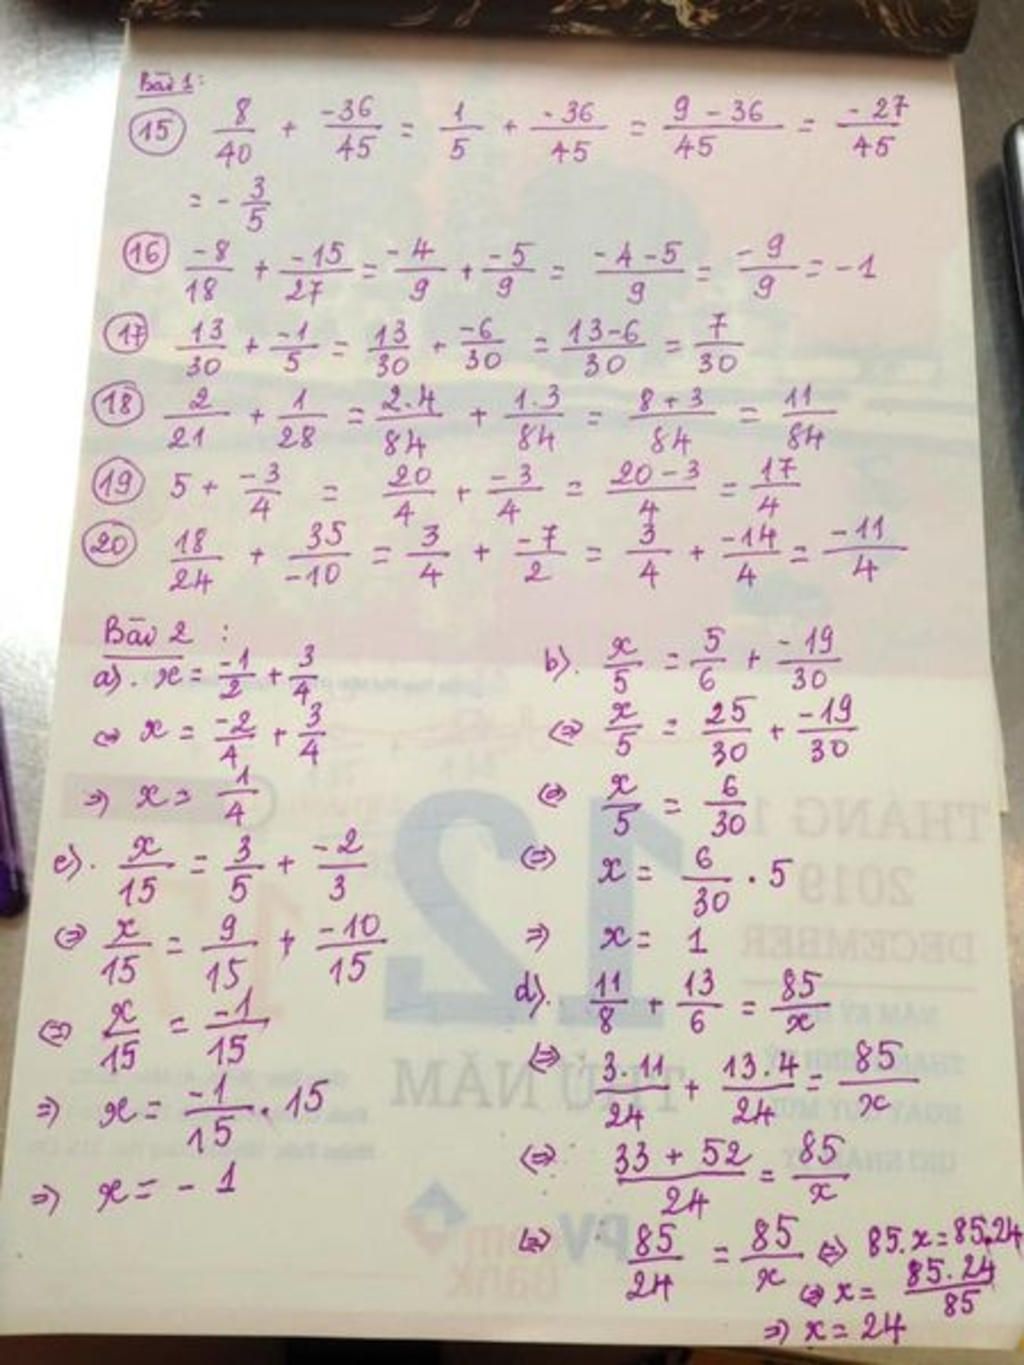 Bài 1:
15 8/40 + -36/45 = 1/5 + -36/45 = 9-36/45 = -27/45
= - 3/5
16 -8/18 + -15/27 = -4/9 + -5/9 = -4-5/9 = -9/9 = -1
17 13/30 + -1/5 = 13/30 + -6/30 = 13-6/30 = 7/30
18 2/21 + 1/28 = 2.4/84 + 1.3/84 = 8+3/84 = 11/84
19 5 + -3/4 = 20/4 + -3/4 = 20-3/4 = 17/4
20 18/24 + 35/-10 = 3/4 + -7/2 = 3/4 + -14/4 = -11/4
Bài 2 :
a). x = -1/2 + 3/4
⇔ x = -2/4 + 3/4
⇒ x = 1/4
c). x/15 = 3/5 + -2/3
⇔ x/15 = 9/15 + -10/15
⇔ x/15 = -1/15
⇒ x = -1/15 . 15
⇒ x = - 1
b). x/5 = 5/6 + -19/30
⇔ x/5 = 25/30 + -19/30
⇔ x/5 = 6/30
⇔ x = 6/30 . 5
⇒ x = 1
d). 11/8 + 13/6 = 85/x
⇔ 3.11/24 + 13.4/24 = 85/x
⇔ 33 + 52/24 = 85/x
⇔ 85/24 = 85/x ⇔ 85.x = 85.24
⇔ x = 85.24/85
⇒ x = 24
THÁNG 1
2019
DECEMBER
12
THỨ NĂM
PV
Bank